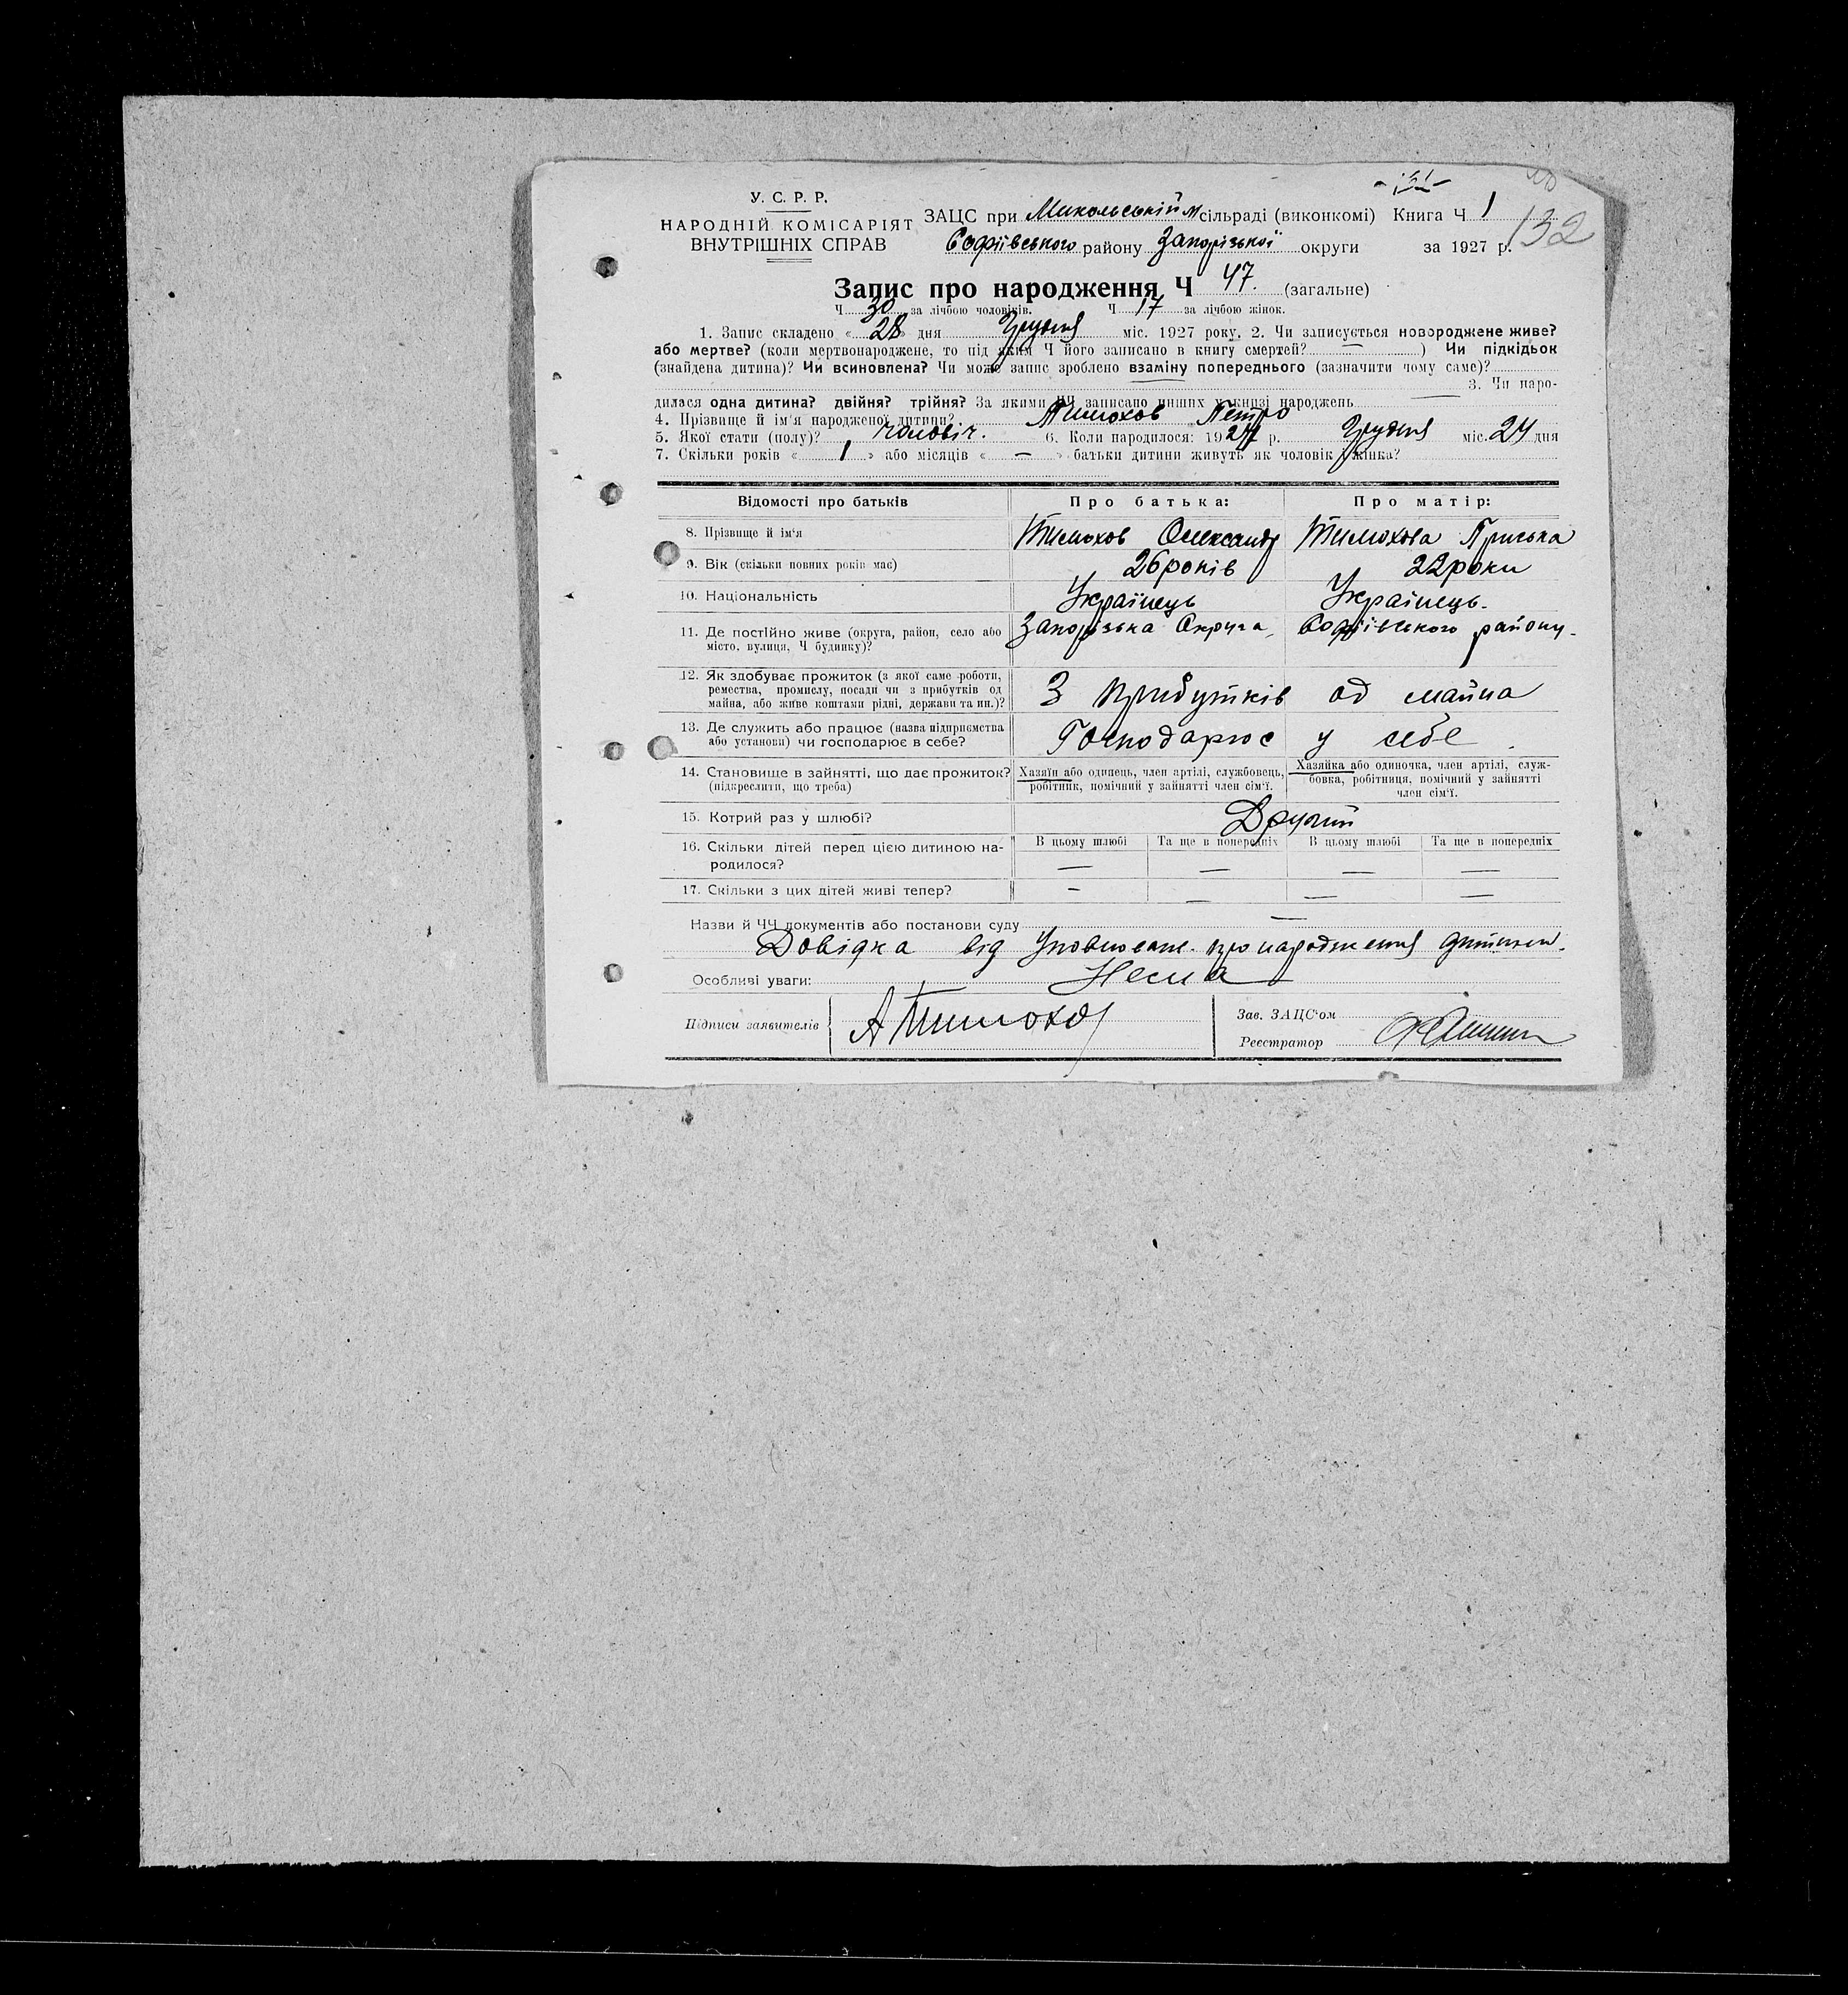 У. С. Р. Р.
НАРОДНІЙ КОМІСАРІЯТ
ВНУТРІШНІХ СПРАВ
ЗАЦС при Микольській сільраді (виконкомі) Книга Ч 1
132
Софіївського району Запорізької округи за 1927 р.
Запис про народження Ч 47. (загальне)
Ч 30 за лічбою чоловіків. Ч 17 за лічбою жінок.
1. Запис складено « 28 » дня Грудня міс. 1927 року. 2. Чи записується новороджене живе?
або мертве? (коли мертвонароджене, то під яким Ч його записано в книгу смертей? — ) Чи підкідьок
(знайдена дитина)? Чи всиновлена? Чи може запис зроблено взаміну попереднього (зазначити чому саме)?
— 3. Чи наро-
дилася одна дитина? двійня? трійня? За якими ЧЧ записано инших у книзі народжень —
4. Прізвище й ім'я народженої дитини? Тимохов Петро
5. Якої стати (полу)? чоловіч. 6. Коли народилося: 1927 р. Грудня міс. 24 дня
7. Скільки років « 1 » або місяців « — » батьки дитини живуть як чоловік і жінка?
Відомості про батьків Про батька: Про матір:
8. Прізвище й ім'я Тимохов Олександр Тимохова Приська
9. Вік (скільки повних років має) 26 років 22 роки
10. Національність Українець Українець.
11. Де постійно живе (округа, район, село або Запорізька Округа, Софіївського району.
місто, вулиця, Ч будинку)?
12. Як здобуває прожиток (з якої саме роботи,
ремества, промислу, посади чи з прибутків од З прибутків од майна
майна, або живе коштами рідні, держави та ин.)?
13. Де служить або працює (назва підприємства Господарює у себе.
або установи) чи господарює в себе?
14. Становище в зайнятті, що дає прожиток? Хазяїн або одинець, член артілі, службовець, Хазяйка або одиночка, член артілі, служ-
(підкреслити, що треба) робітник, помічний у зайнятті член сім'ї. бовка, робітниця, помічний у зайнятті
член сім'ї.
15. Котрий раз у шлюбі? Другий
16. Скільки дітей перед цією дитиною на- В цьому шлюбі Та ще в попередніх В цьому шлюбі Та ще в попередніх
родилося? — — — —
17. Скільки з цих дітей живі тепер? — — — —
Назви й ЧЧ документів або постанови суду —
Довідка від Уповноваж. про народження дитини.
Особливі уваги: Нема
Підписи заявителів А Тимохов Зав. ЗАЦС'ом
Реєстратор